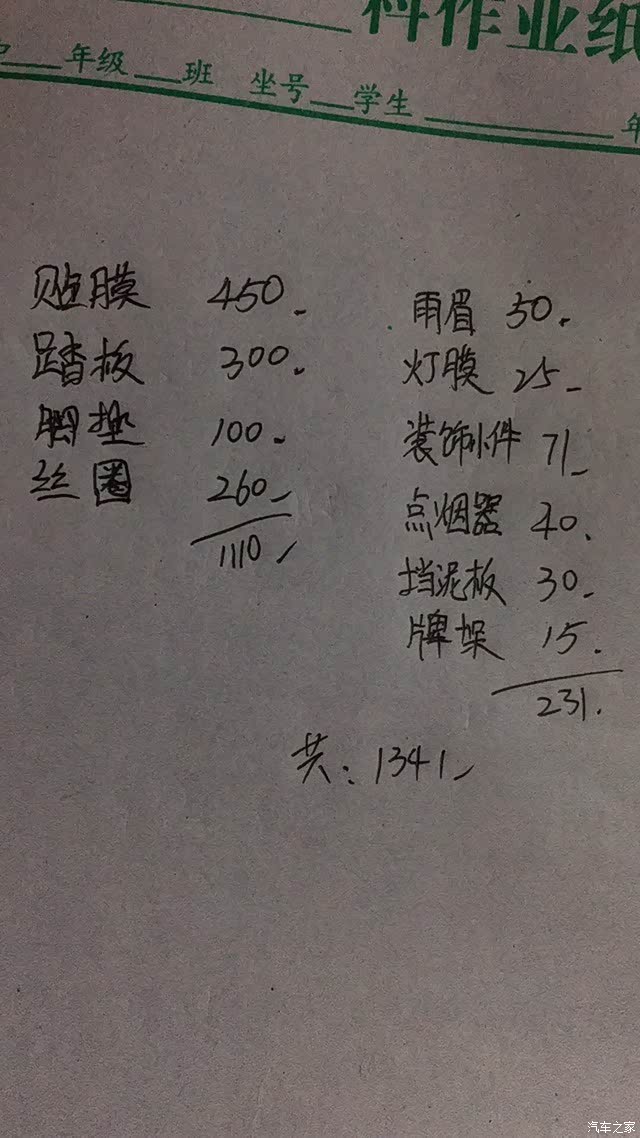 科作业纸
年级 班 坐号 学生 年
贴膜 450.
踏板 300.
脚垫 100.
丝圈 260
1110
雨眉 50.
灯膜 25
装饰小件 71
点烟器 40.
挡泥板 30
牌架 15.
231.
共: 1341
汽车之家